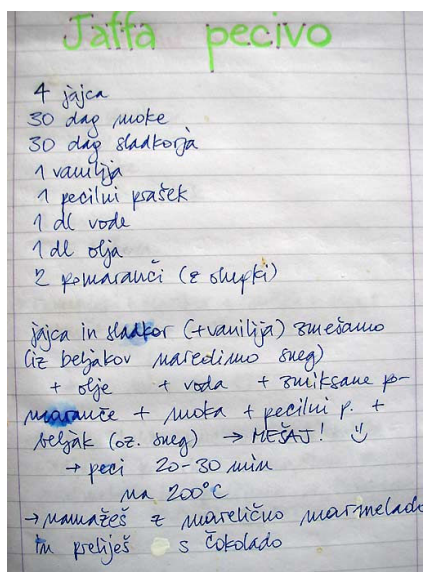 Jaffa pecivo
4 jajca
30 dag moke
30 dag sladkorja
1 vanilija
1 pecilni prašek
1 dl vode
1 dl olja
2 pomaranči (z olupki)
jajca in sladkor (+vanilija) zmešamo
(iz beljakov naredimo sneg)
+ olje + voda + zmiksane po-
maranče + moka + pecilni p. +
beljak (oz. sneg) → MEŠAJ!
→ peci 20-30 min
na 200°C
→ namažeš z marelično marmelado
in preliješ s čokolado